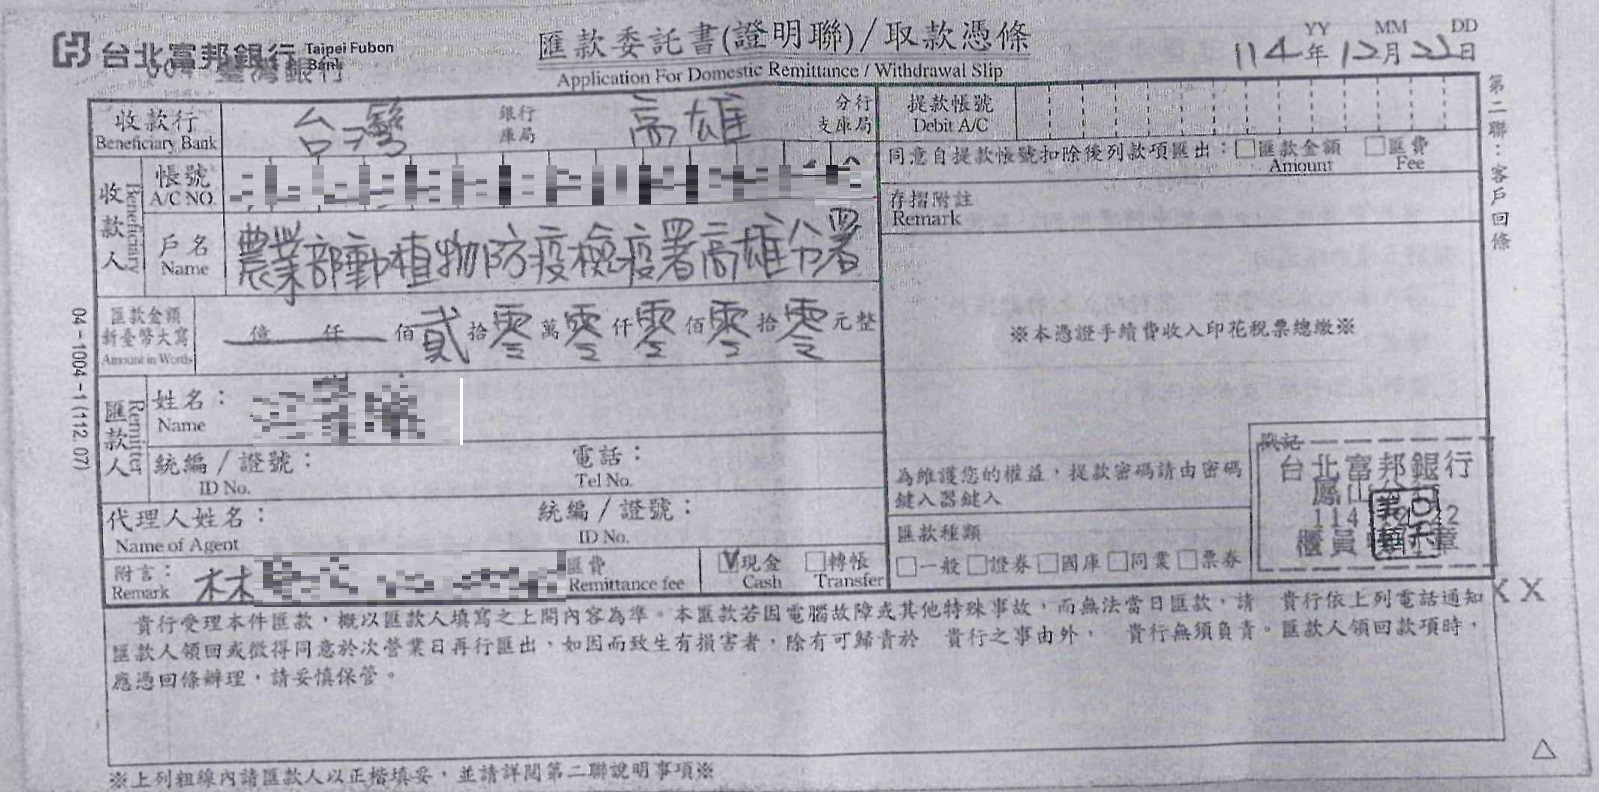 台北富邦銀行 Taipei Fubon Bank
004 臺灣銀行
匯款委託書(證明聯)/取款憑條
Application For Domestic Remittance / Withdrawal Slip
YY MM DD
114年12月22日
第二聯：客戶回條
收款行 台灣 銀行 高雄 分行
Beneficiary Bank 庫局 支庫局
提款帳號
Debit A/C
同意自提款帳號扣除後列款項匯出：□匯款金額 □匯費
Amount Fee
收款人 Beneficiary
帳號
A/C NO.
戶名 農業部動植物防疫檢疫署高雄分署
Name
存摺附註
Remark
匯款金額
新臺幣大寫
Amount in Words
億 仟 佰 貳 拾 零 萬 零 仟 零 佰 零 拾 零 元整
※本憑證手續費收入印花稅票總繳※
04-1004-1(112.07)
匯款人 Remitter
姓名：
Name
統編／證號： 電話：
ID No. Tel No.
代理人姓名： 統編／證號：
Name of Agent ID No.
附言： 林
Remark
匯費
Remittance fee
☑現金 □轉帳
Cash Transfer
為維護您的權益，提款密碼請由密碼
鍵入器鍵入
匯款種類
□一般□證券□國庫□同業□票券
登記
台北富邦銀行
鳳山
114 12 22
櫃員 章
X X
貴行受理本件匯款，概以匯款人填寫之上開內容為準。本匯款若因電腦故障或其他特殊事故，而無法當日匯款，請 貴行依上列電話通知
匯款人領回或徵得同意於次營業日再行匯出，如因而致生有損害者，除有可歸責於 貴行之事由外， 貴行無須負責。匯款人領回款項時，
應憑回條辦理，請妥慎保管。
※上列粗線內請匯款人以正楷填妥，並請詳閱第二聯說明事項※